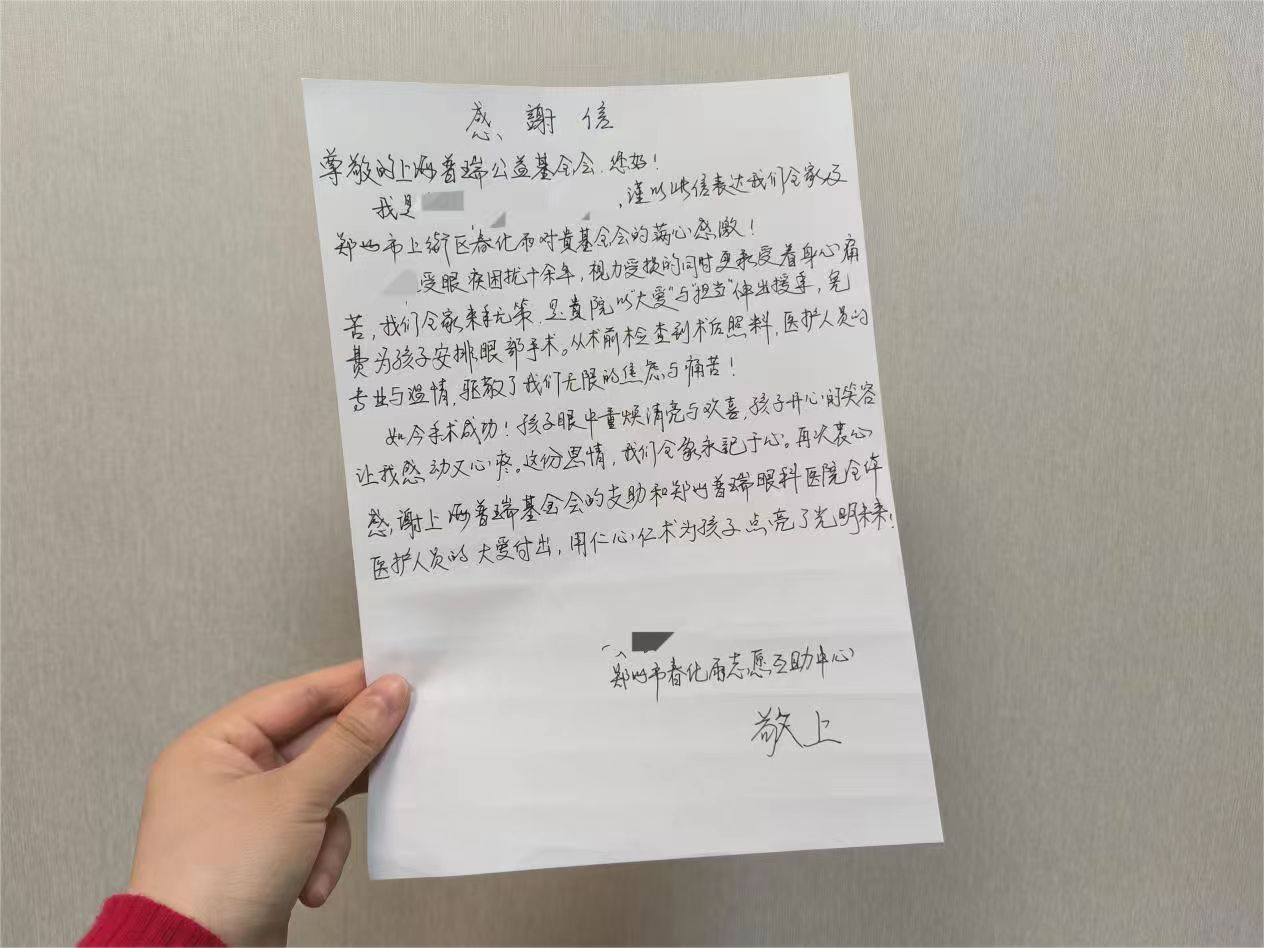 感謝信
尊敬的上海普瑞公益基金会.您好!
我是 ,谨以此信表达我们全家及
郑州市上街区春化雨对贵基金会的满心感激!
受眼疾困扰十余年,视力受损的同时更承受着身心痛
苦,我们全家束手无策.是贵院以"大爱"与"担当"伸出援手,免
费为孩子安排眼部手术。从术前检查到术后照料,医护人员的
专业与温情,驱散了我们无限的焦虑与痛苦!
如今手术成功!孩子眼中重焕清亮与欢喜,孩子开心的笑容
让我感动又心疼。这份恩情,我们全家永记于心。再次衷心
感谢上海普瑞基金会的支助和郑州普瑞眼科医院全体
医护人员的大爱付出,用仁心仁术为孩子点亮了光明未来!
郑州市春化雨志愿互助中心
敬上